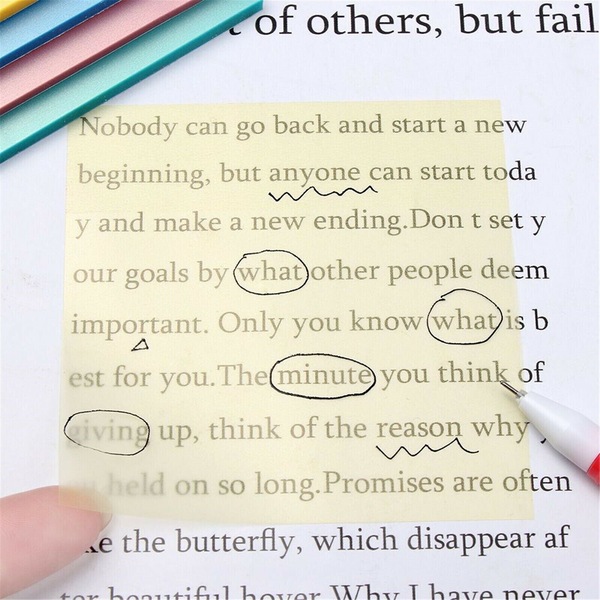 of others, but fail
Nobody can go back and start a new
beginning, but anyone can start toda
y and make a new ending.Don t set y
our goals by what other people deem
important. Only you know what is b
est for you.The minute you think of
giving up, think of the reason why
held on so long.Promises are often
the butterfly, which disappear af
beautiful hover.Why I have never